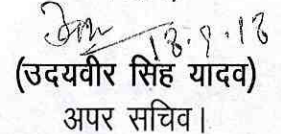 18.9.18
(उदयवीर सिंह यादव)
अपर सचिव।